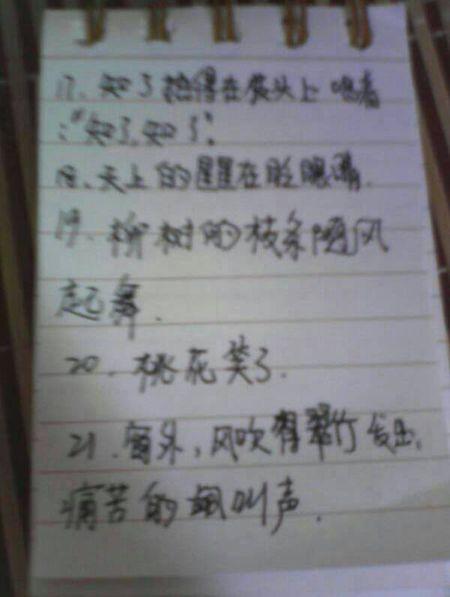 17、知了抬得在枝头上 唱着
:“知了,知了”.
18、天上的星星在眨眼睛.
19、柳树的枝条随风
起舞.
20、桃花笑了.
21、窗外,风吹着翠竹发出,
痛苦的 叫声.